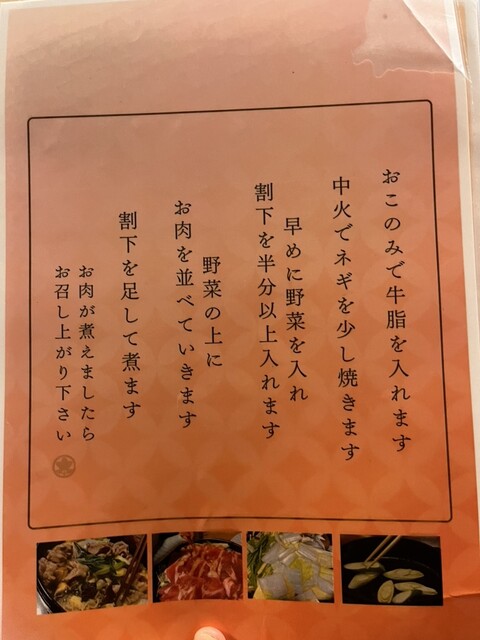 おこのみで牛脂を入れます
中火でネギを少し焼きます
早めに野菜を入れ
割下を半分以上入れます
野菜の上に
お肉を並べていきます
割下を足して煮ます
お肉が煮えましたら
お召し上がり下さい